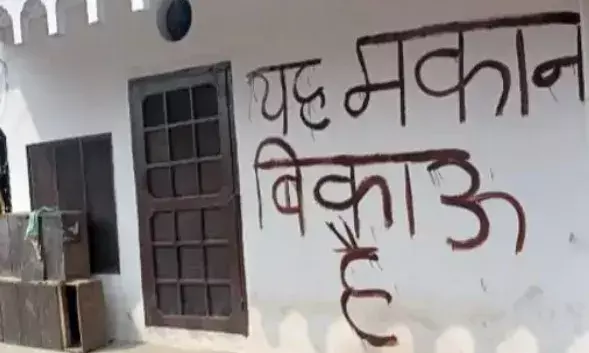 यह मकान
बिकाऊ
है